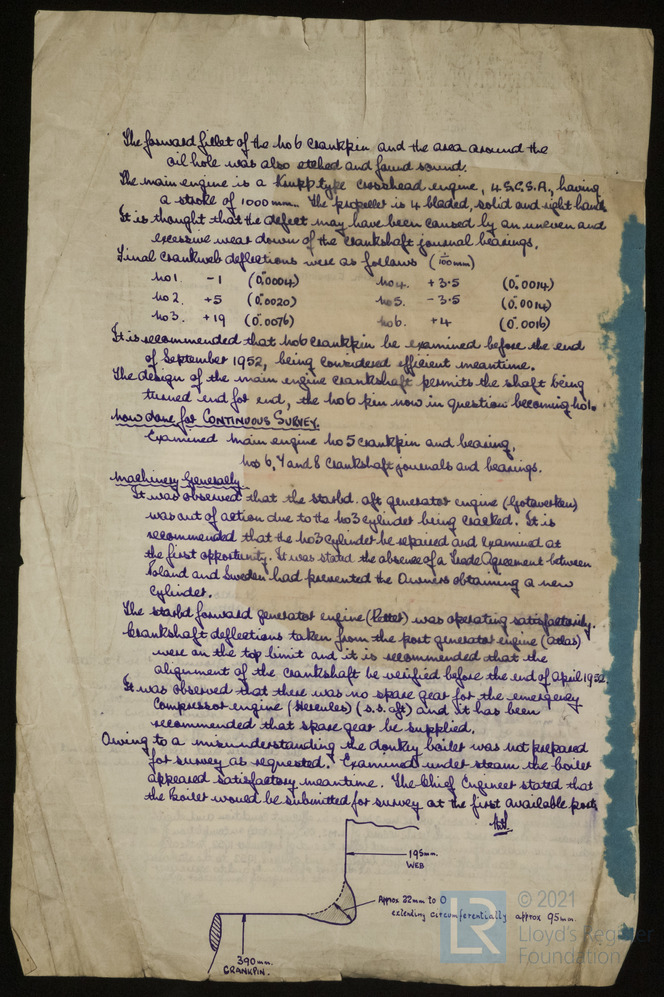 The forward fillet of the No 6 crankpin and the area around the
oil hole was also etched and found sound.
The main engine is a Krupp type crosshead engine, 4 S.C.S.A., having
a stroke of 1000 mm. The propeller is 4 bladed, solid and right hand.
It is thought that the defect may have been caused by an uneven and
excessive wear down of the crankshaft journal bearings.
Final crankweb deflections were as follows (1/100 mm)
No 1. -1 (0".0004) No 4. +3.5 (0".0014)
No 2. +5 (0".0020) No 5. -3.5 (0".0014)
No 3. +19 (0".0076) No 6. +4 (0".0016)
It is recommended that No 6 crankpin be examined before the end
of September 1952, being considered efficient meantime.
The design of the main engine crankshaft permits the shaft being
turned end for end, the No 6 pin now in question becoming No 1.
Now done for CONTINUOUS SURVEY.
Examined main engine No 5 crankpin and bearing.
Nos 6, 7 and 8 crankshaft journals and bearings.
Machinery Generally
It was observed that the starbd. aft generator engine (Gotaverken)
was out of action due to the No 3 cylinder being cracked. It is
recommended that the No 3 cylinder be repaired and examined at
the first opportunity. It was stated the absence of a Trade Agreement between
Poland and Sweden had prevented the Owners obtaining a new
cylinder.
The starbd forward generator engine (Petter) was operating satisfactorily.
Crankshaft deflections taken from the port generator engine (Atlas)
were on the top limit and it is recommended that the
alignment of the crankshaft be verified before the end of April 1952.
It was observed that there was no spare gear for the emergency
compressor engine (Hercules) (s.s. aft) and it has been
recommended that spare gear be supplied.
Owing to a misunderstanding the donkey boiler was not prepared
for survey as requested. Examined under steam the boiler
appeared satisfactory meantime. The Chief Engineer stated that
the boiler would be submitted for survey at the first available port.
195 mm.
WEB
Approx 22mm to 0
extending circumferentially approx 95mm.
390 mm.
CRANKPIN.
LR
© 2021
Lloyd's Register
Foundation